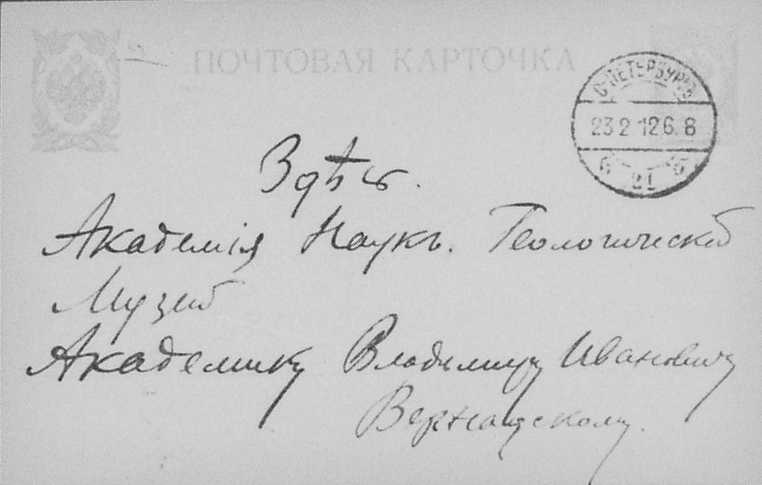 ПОЧТОВАЯ КАРТОЧКА
С.ПЕТЕРБУРГЪ
23 2 12 6. 8
21
Здѣсь.
Академія Наукъ. Геологическій
Музей
Академику Владимиру Ивановичу
Вернадскому.